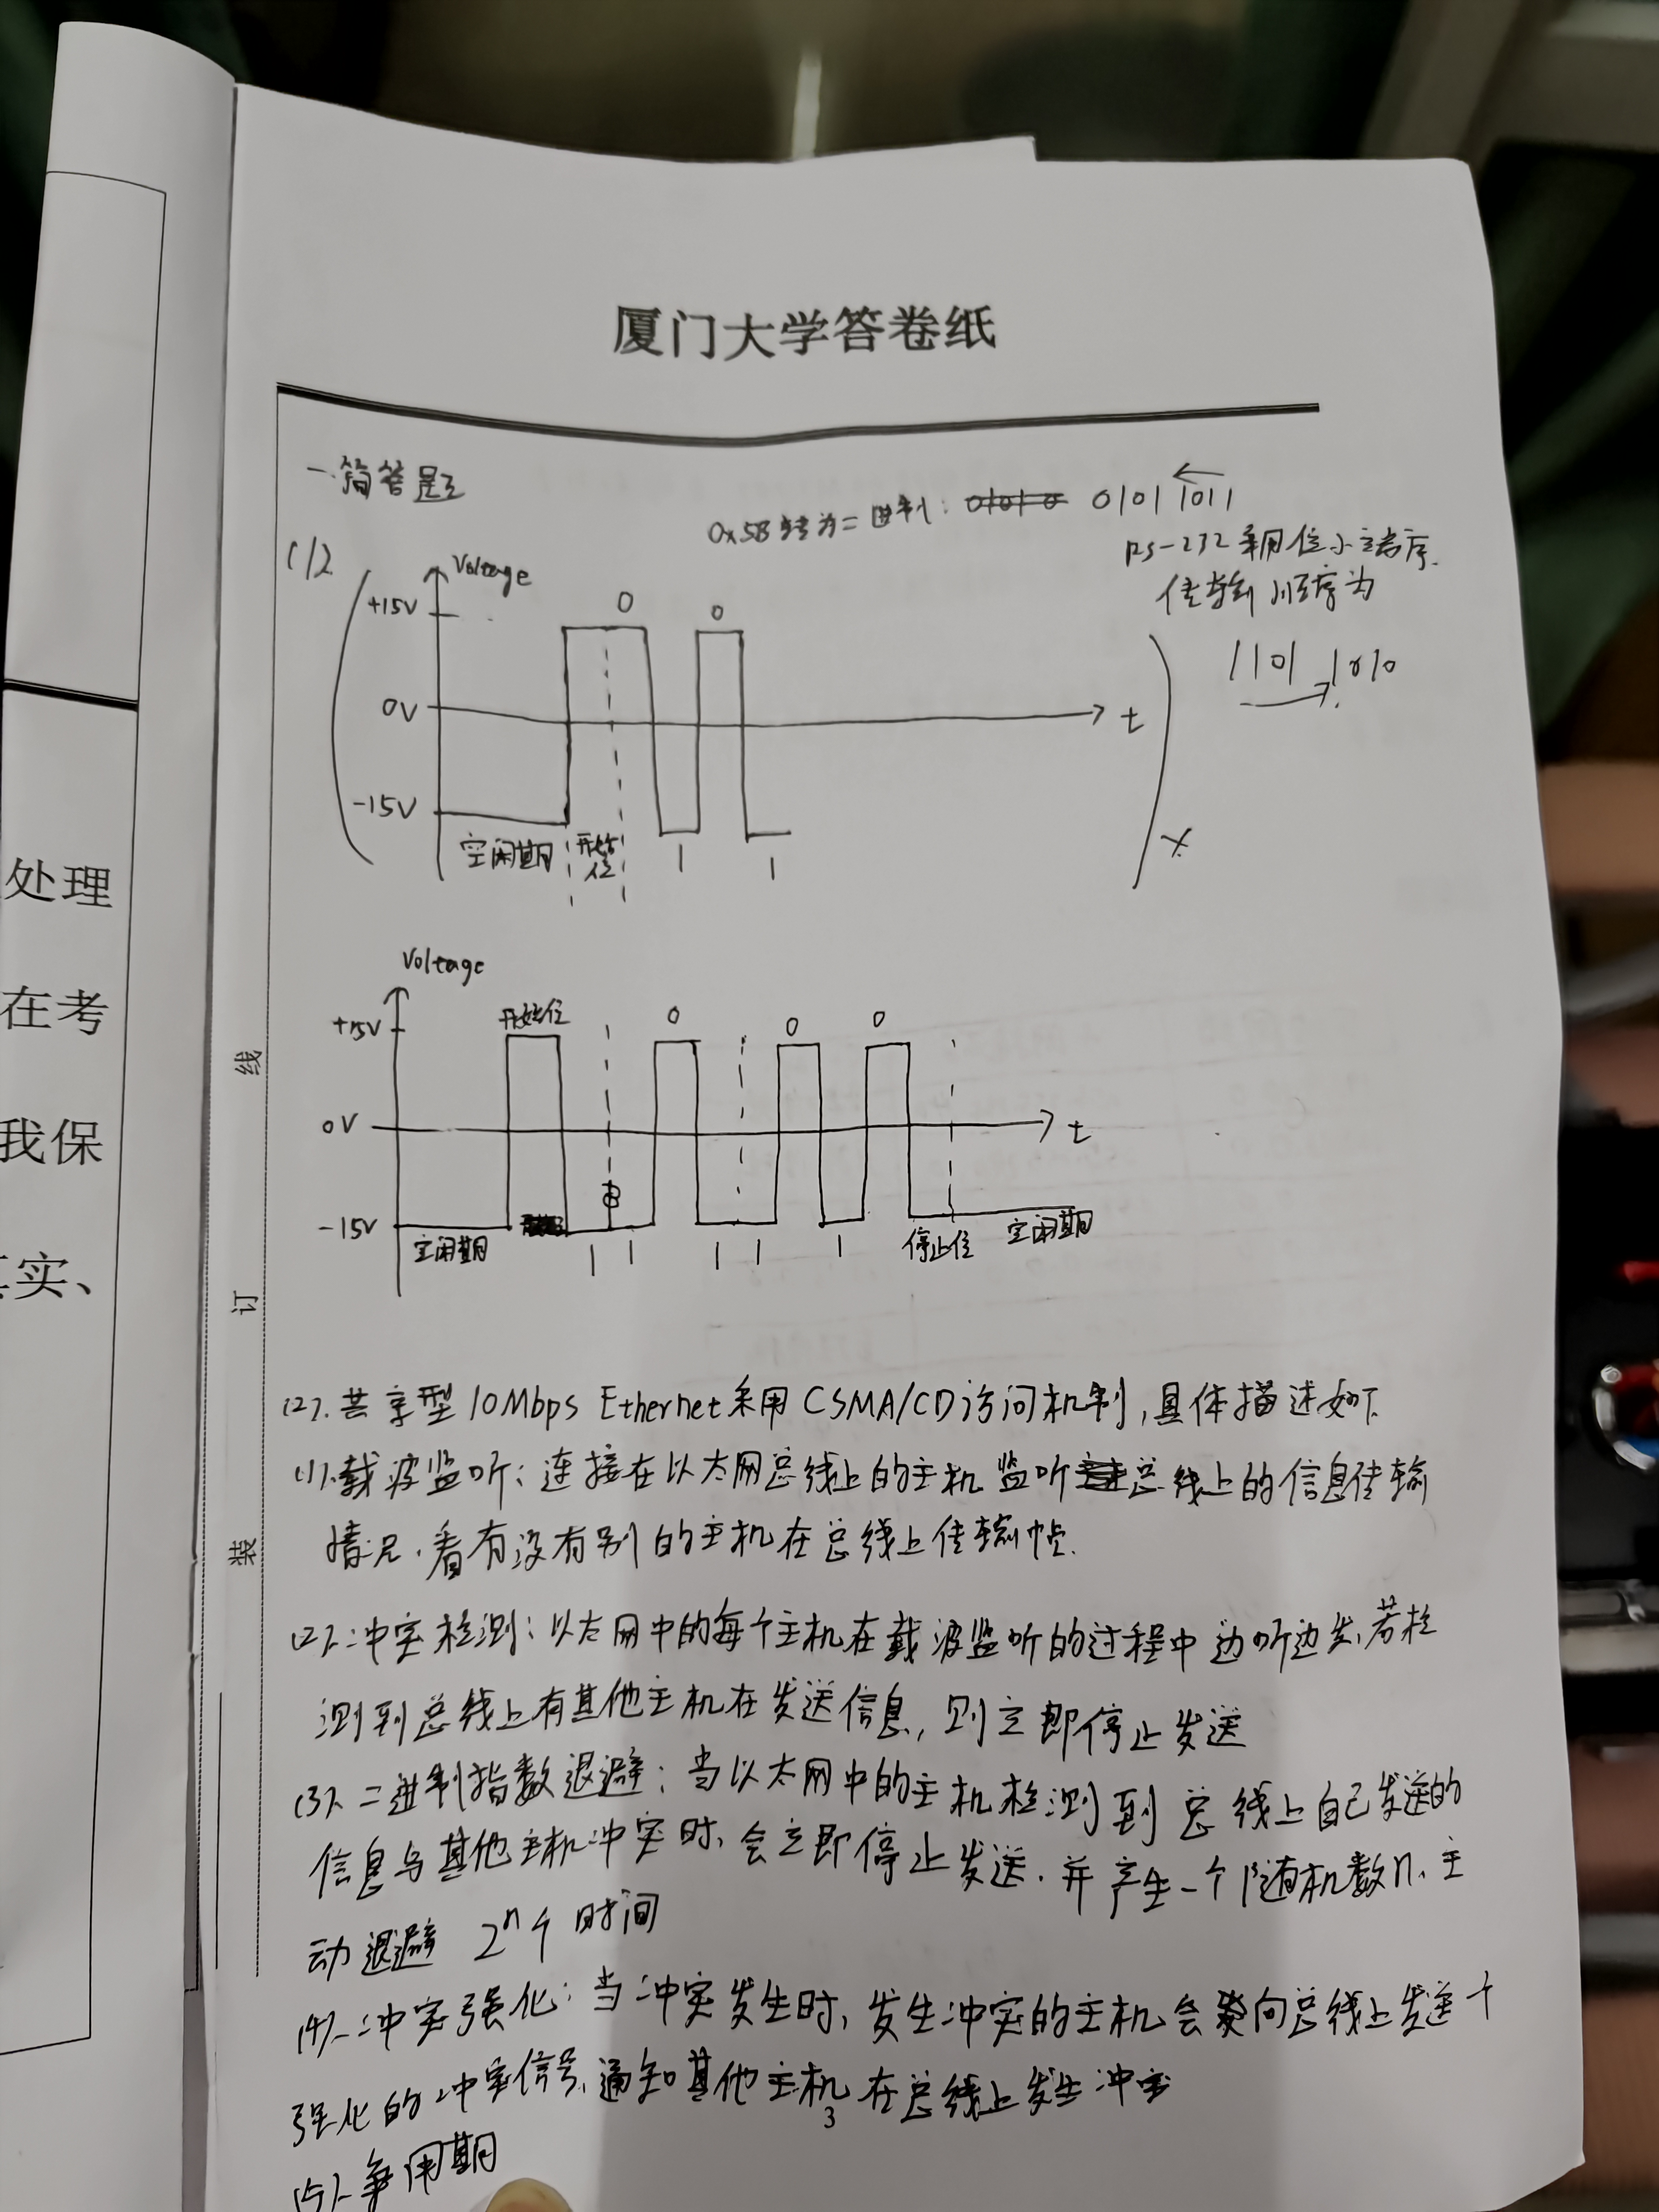 处理
在考
我保
实、
线
订
装
厦门大学答卷纸
一.简答题
0x5B转为二进制: 0101 1011
RS-232采用位小端序.
传输顺序为
1101 1010
(1).
Voltage
+15V
0
0
0V
t
-15V
空闲期
开始位
1
1
×
Voltage
+15V
开始位
0
0
0
0V
t
-15V
空闲期
1 1 1 1 1
停止位
空闲期
(2).共享型10Mbps Ethernet采用CSMA/CD访问机制,具体描述如下
(1).载波监听:连接在以太网总线上的主机监听总线上的信息传输
情况.看有没有别的主机在总线上传输帧.
(2).冲突检测:以太网中的每个主机在载波监听的过程中边听边发,若检
测到总线上有其他主机在发送信息,则立即停止发送
(3).二进制指数退避:当以太网中的主机检测到总线上自己发送的
信息与其他主机冲突时,会立即停止发送.并产生一个随机数n.主
动退避 2ⁿ个时间
(4).冲突强化:当冲突发生时,发生冲突的主机会向总线上发送个
强化的冲突信号,通知其他主机在总线上发生冲突
3
(5).争用期